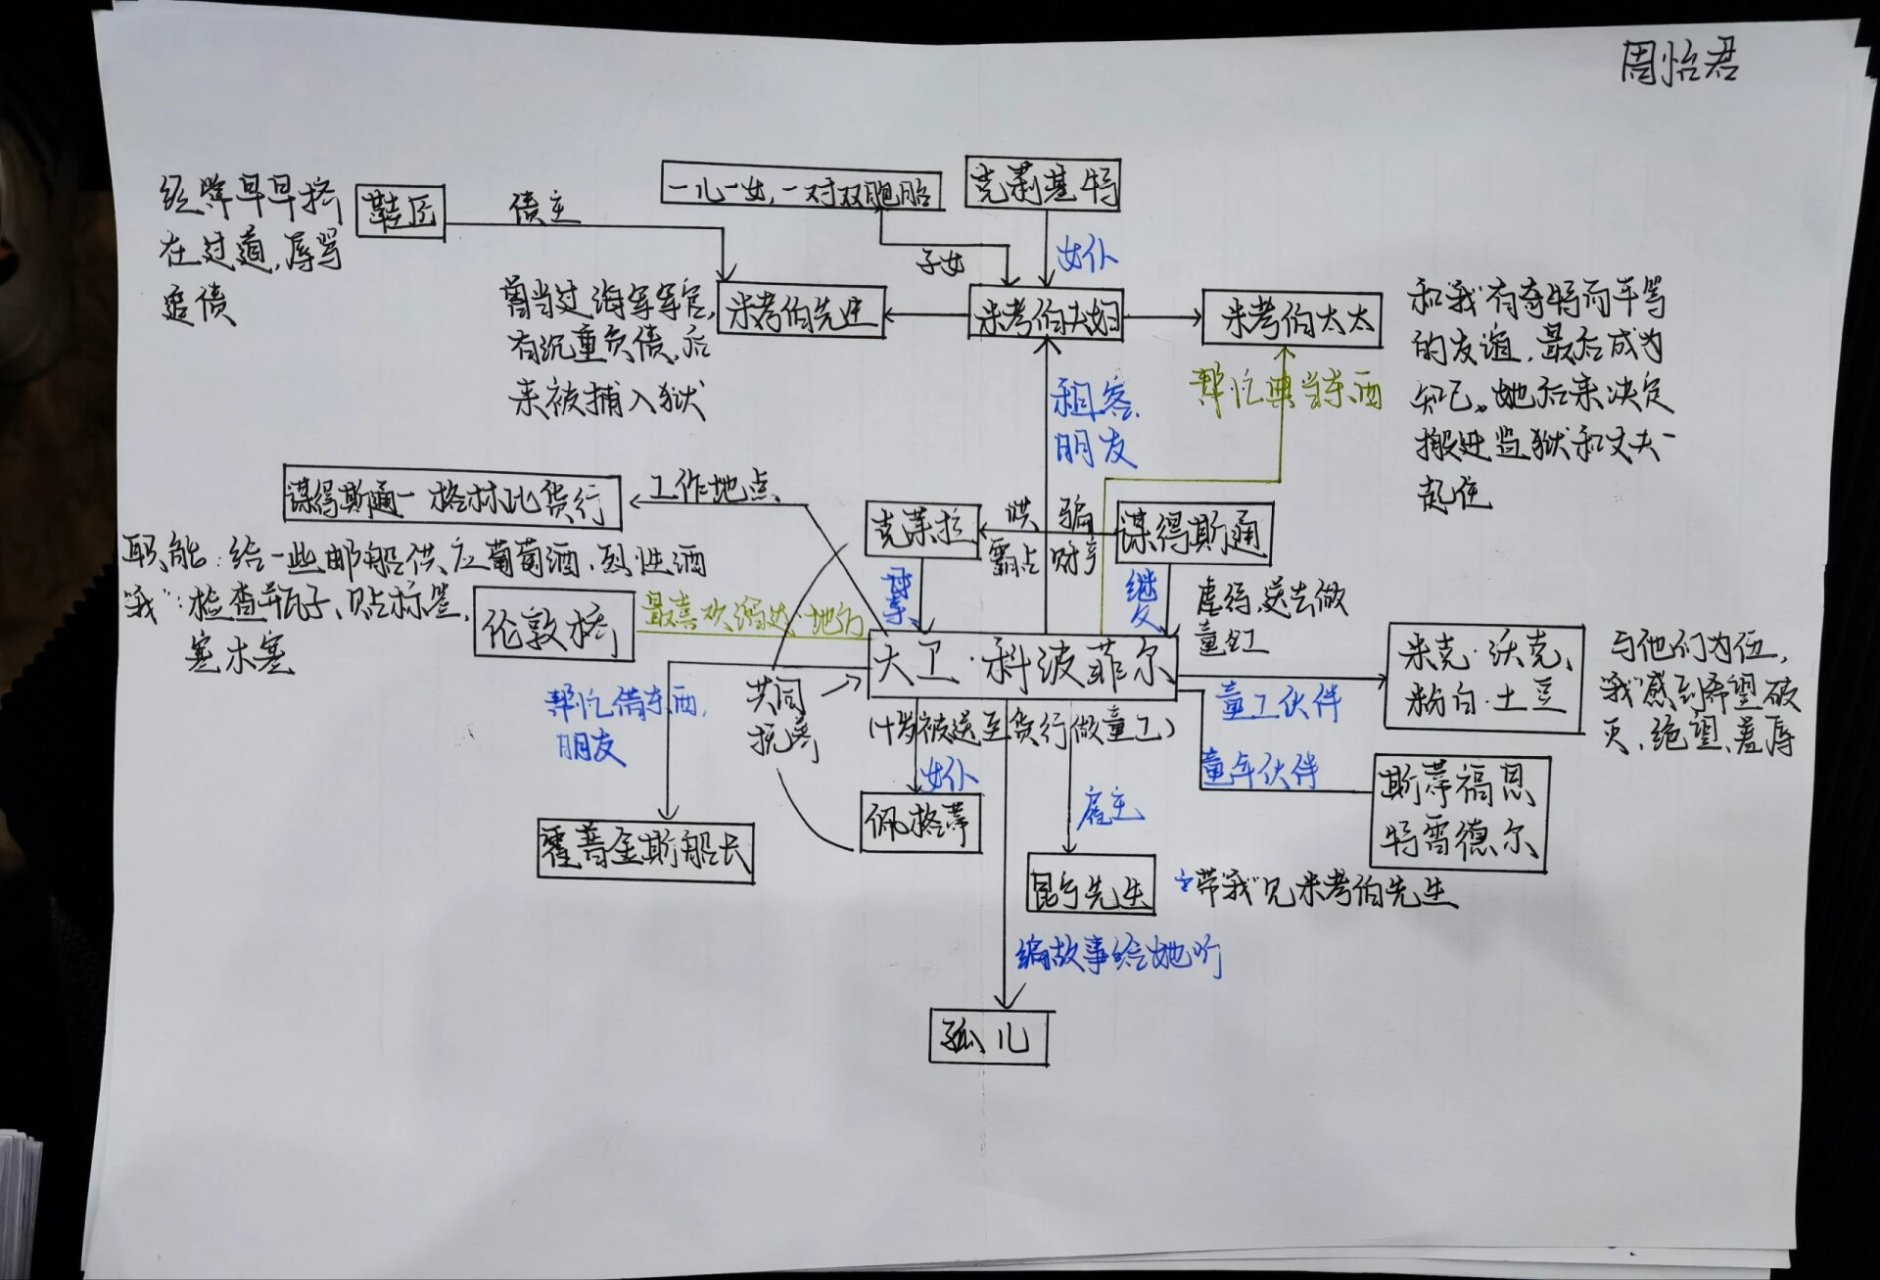 周怡君
经常早早挤
在过道,辱骂
追债
鞋匠
债主
一儿一女,一对双胞胎
克莉基特
子女
女仆
曾当过海军军官,
有沉重负债,后
来被捕入狱
米考伯先生
米考伯夫妇
米考伯太太
和“我”有奇特而平等
的友谊,最后成为
知己。她后来决定
搬进监狱和丈夫一
起住
租客,
朋友
帮忙典当东西
谋得斯通一格林比货行
工作地点
职能:给一些邮船供应葡萄酒、烈性酒
“我”:检查瓶子、贴标签,
塞木塞
克莱拉
哄骗
霸占财产
谋得斯通
母亲
继父
虐待,送去做
童工
伦敦桥
最喜欢溜达地方
大卫·科波菲尔
(十岁被送至货行做童工)
共同
抚养
帮忙借东西,
朋友
霍普金斯船长
女仆
佩格蒂
雇主
昆宁先生
带“我”见米考伯先生
编故事给她听
孤儿
童工伙伴
米克·沃克、
粉白·土豆
与他们为伍,
“我”感到希望破
灭,绝望、羞辱
童年伙伴
斯蒂福思
特雷德尔